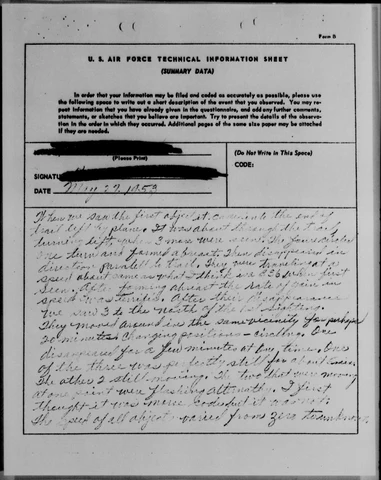 Form B
U. S. AIR FORCE TECHNICAL INFORMATION SHEET
(SUMMARY DATA)
In order that your information may be filed and coded as accurately as possible, please use
the following space to write out a short description of the event that you observed. You may re-
peat information that you have already given in the questionnaire, and add any further comments,
statements, or sketches that you believe are important. Try to present the details of the observa-
tion in the order in which they occurred. Additional pages of the same size paper may be attached
if they are needed.
(Please Print)
SIGNATU
DATE May 22, 1953
(Do Not Write in This Space)
CODE:
When we saw the first object it came into the end of
trail left by plane. It was about through the trail
turning left, when 3 more were seen. The four circled
one turn and formed abreast. Then disappeared in
direction parallel to trail. They were traveling at
speed about same as what I think was a B36 when first
seen. After forming abreast the rate of gain in
speed was terrific. After their disappearance
we saw 3 to the north of the 1st sighting.
They moved around in the same vicinity for perhaps
20 minutes changing positions or circling. One
disappeared for a few minutes at one time. One
of the three was perfectly still for about 5 min.
The other 2 still moving. The two that were moving
at one point were flashing alternately. I first
thought it was morse code but it was not.
The speed of all objects varied from zero to unknown.